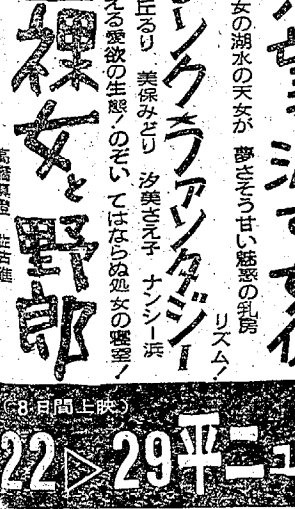 女の湖水の天女が 夢さそう甘い魅惑の乳房
リズム!
ンク★ファンタジー
丘るり 美保みどり 汐美さえ子 ナンシー浜
える愛欲の生態!のぞいてはならぬ処女の寝室!
裸女と野郎
(8日間上映)
22▷29平ニュ